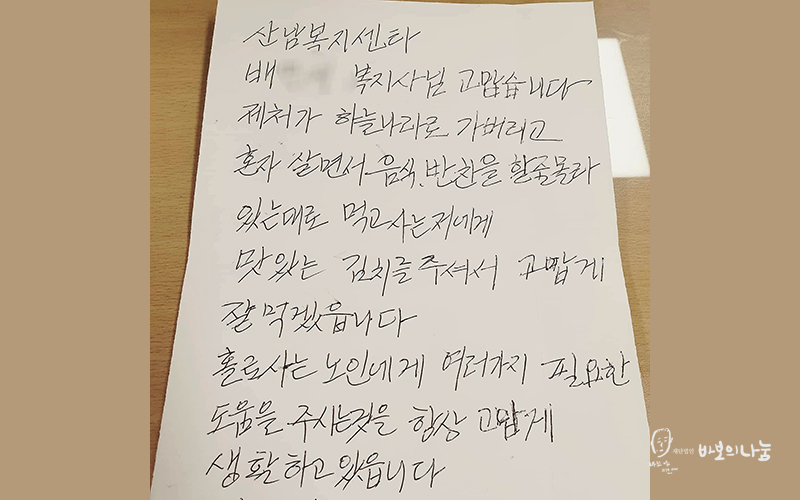 산남복지센타
배 복지사님 고맙습니다
제처가 하늘나라로 가버리고
혼자 살면서 음식, 반찬을 할줄몰라
있는대로 먹고사는저에게
맛있는 김치를주셔서 고맙게
잘먹겠읍니다
홀로사는 노인에게 여러가지 필요한
도움을 주시는것을 항상 고맙게
생활하고있읍니다
재단법인 바보의나눔